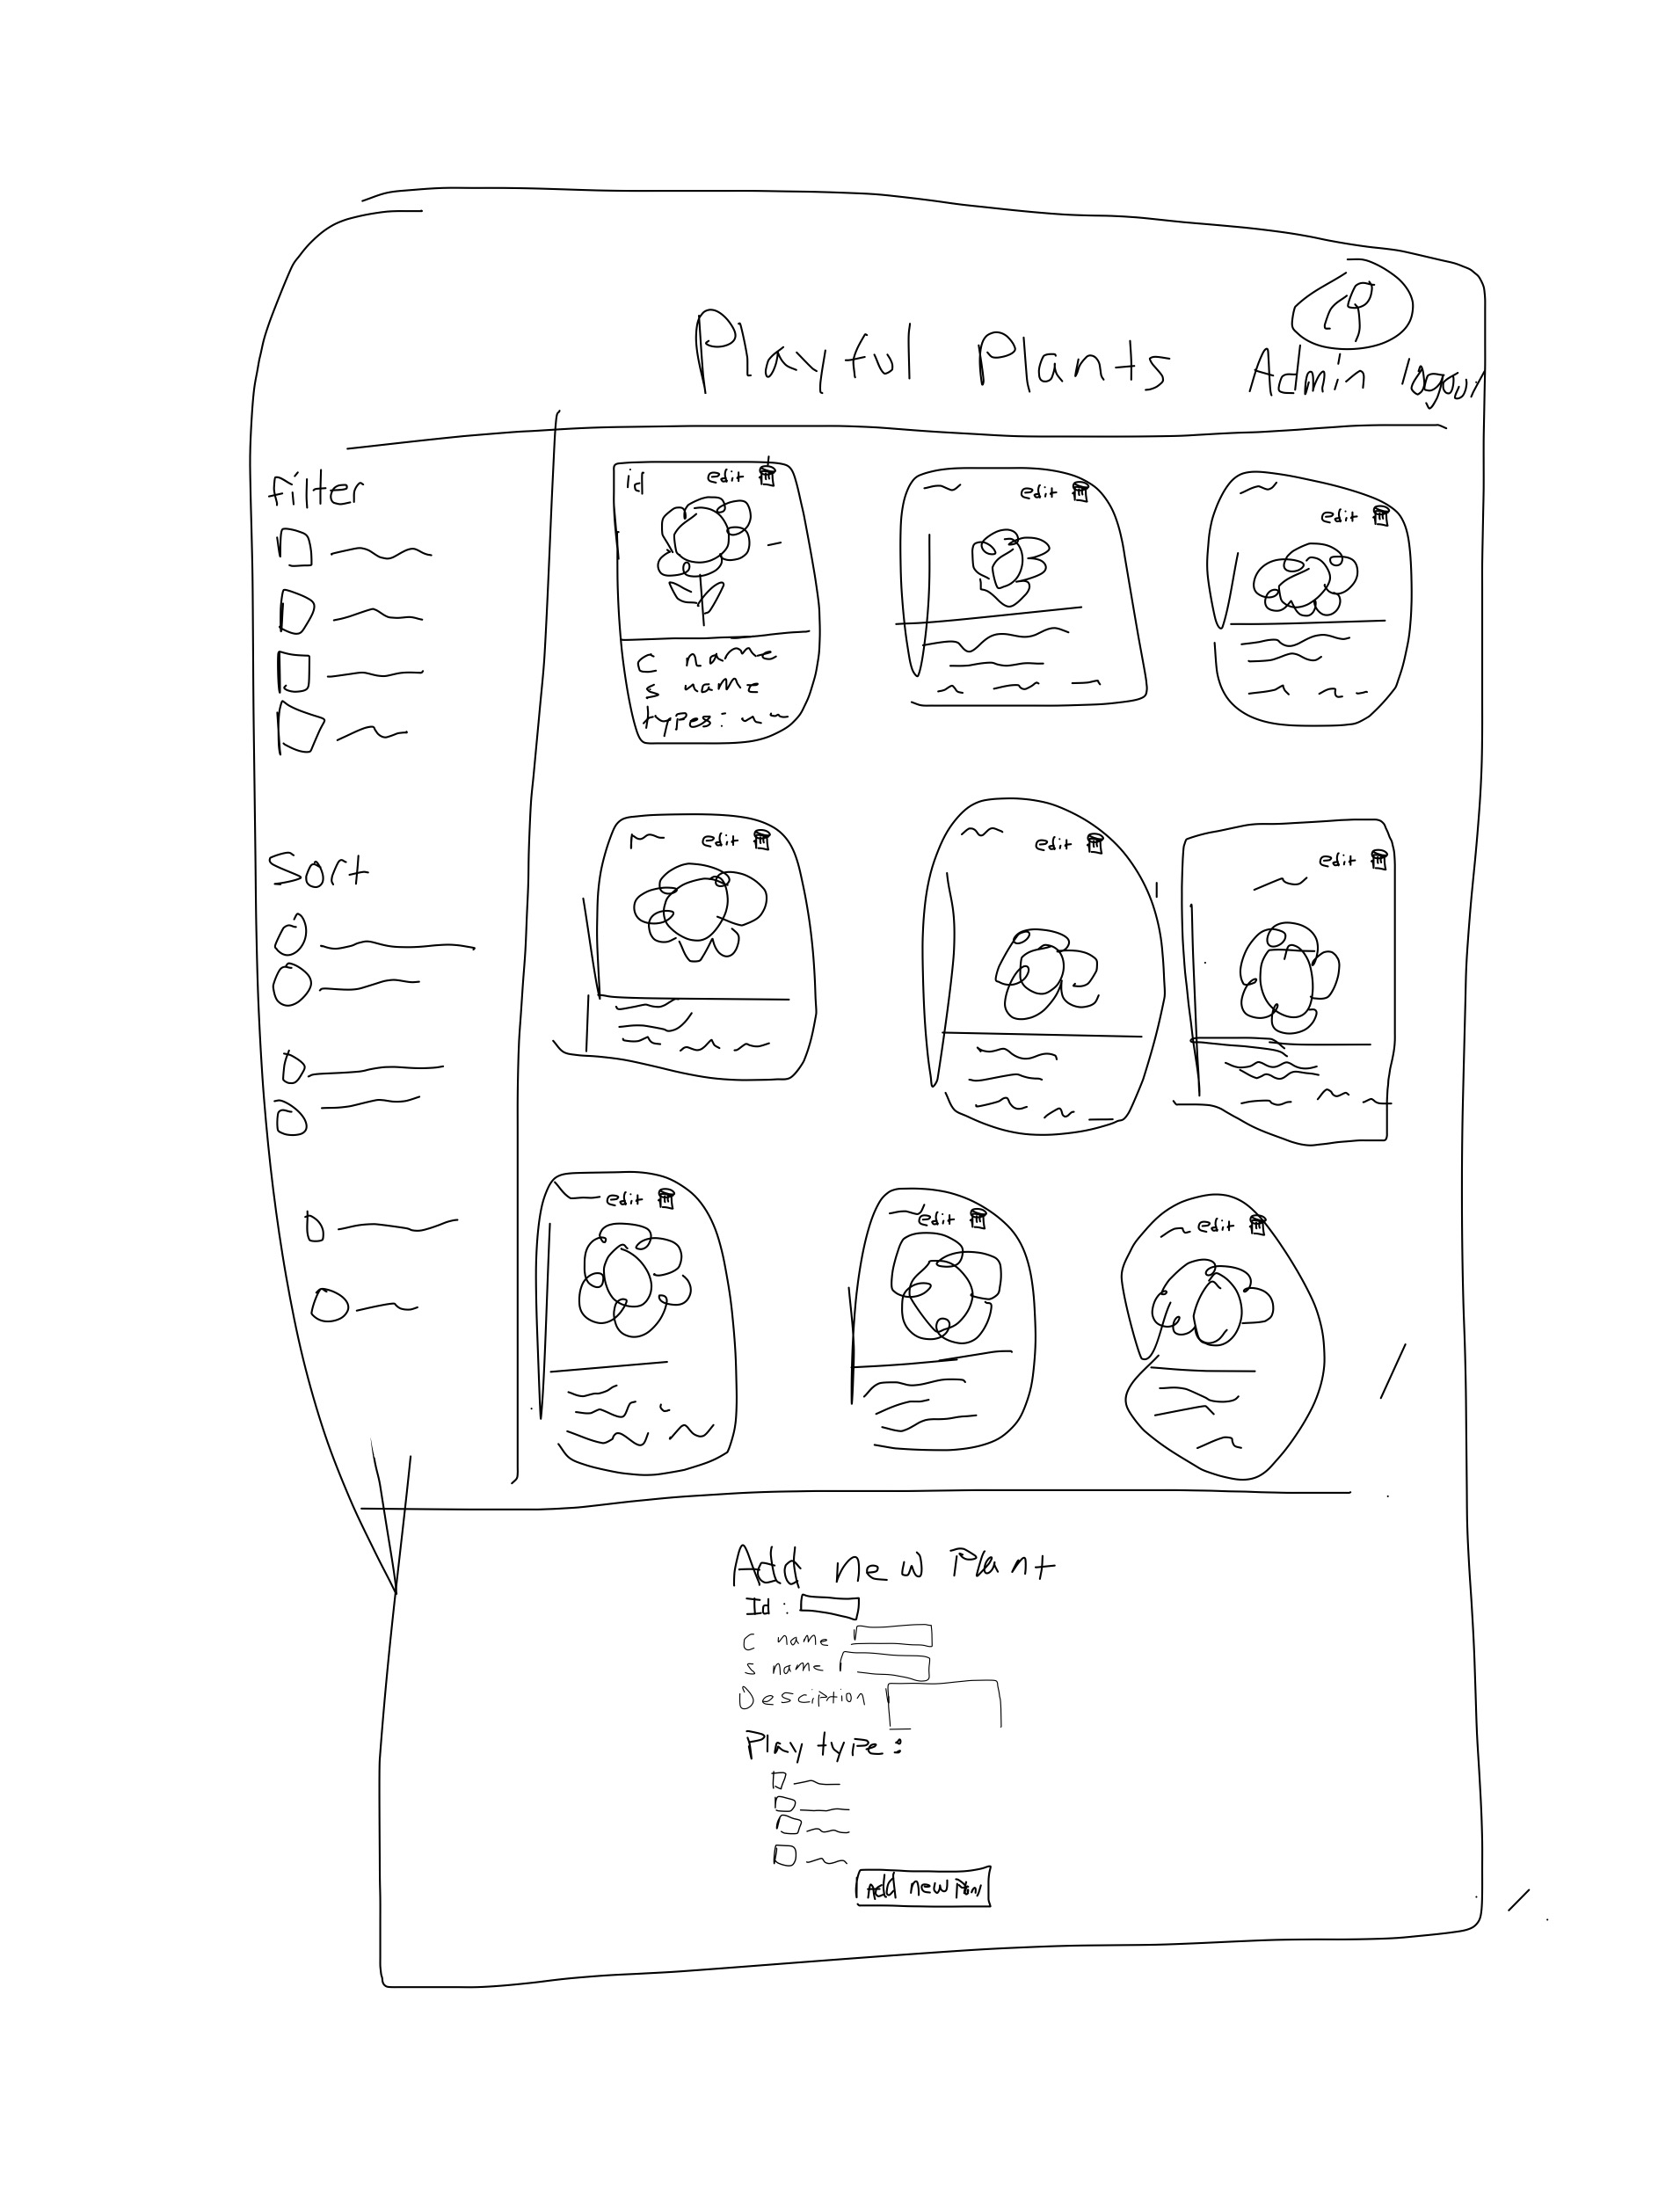 Playful Plants
Admin logout
filter
Sort
id edit
c name
s name
types:
edit
edit
edit
edit
edit
edit
edit
edit
Add new Plant
Id :
c name
s name
Desciption
Play type :
Add new Plant